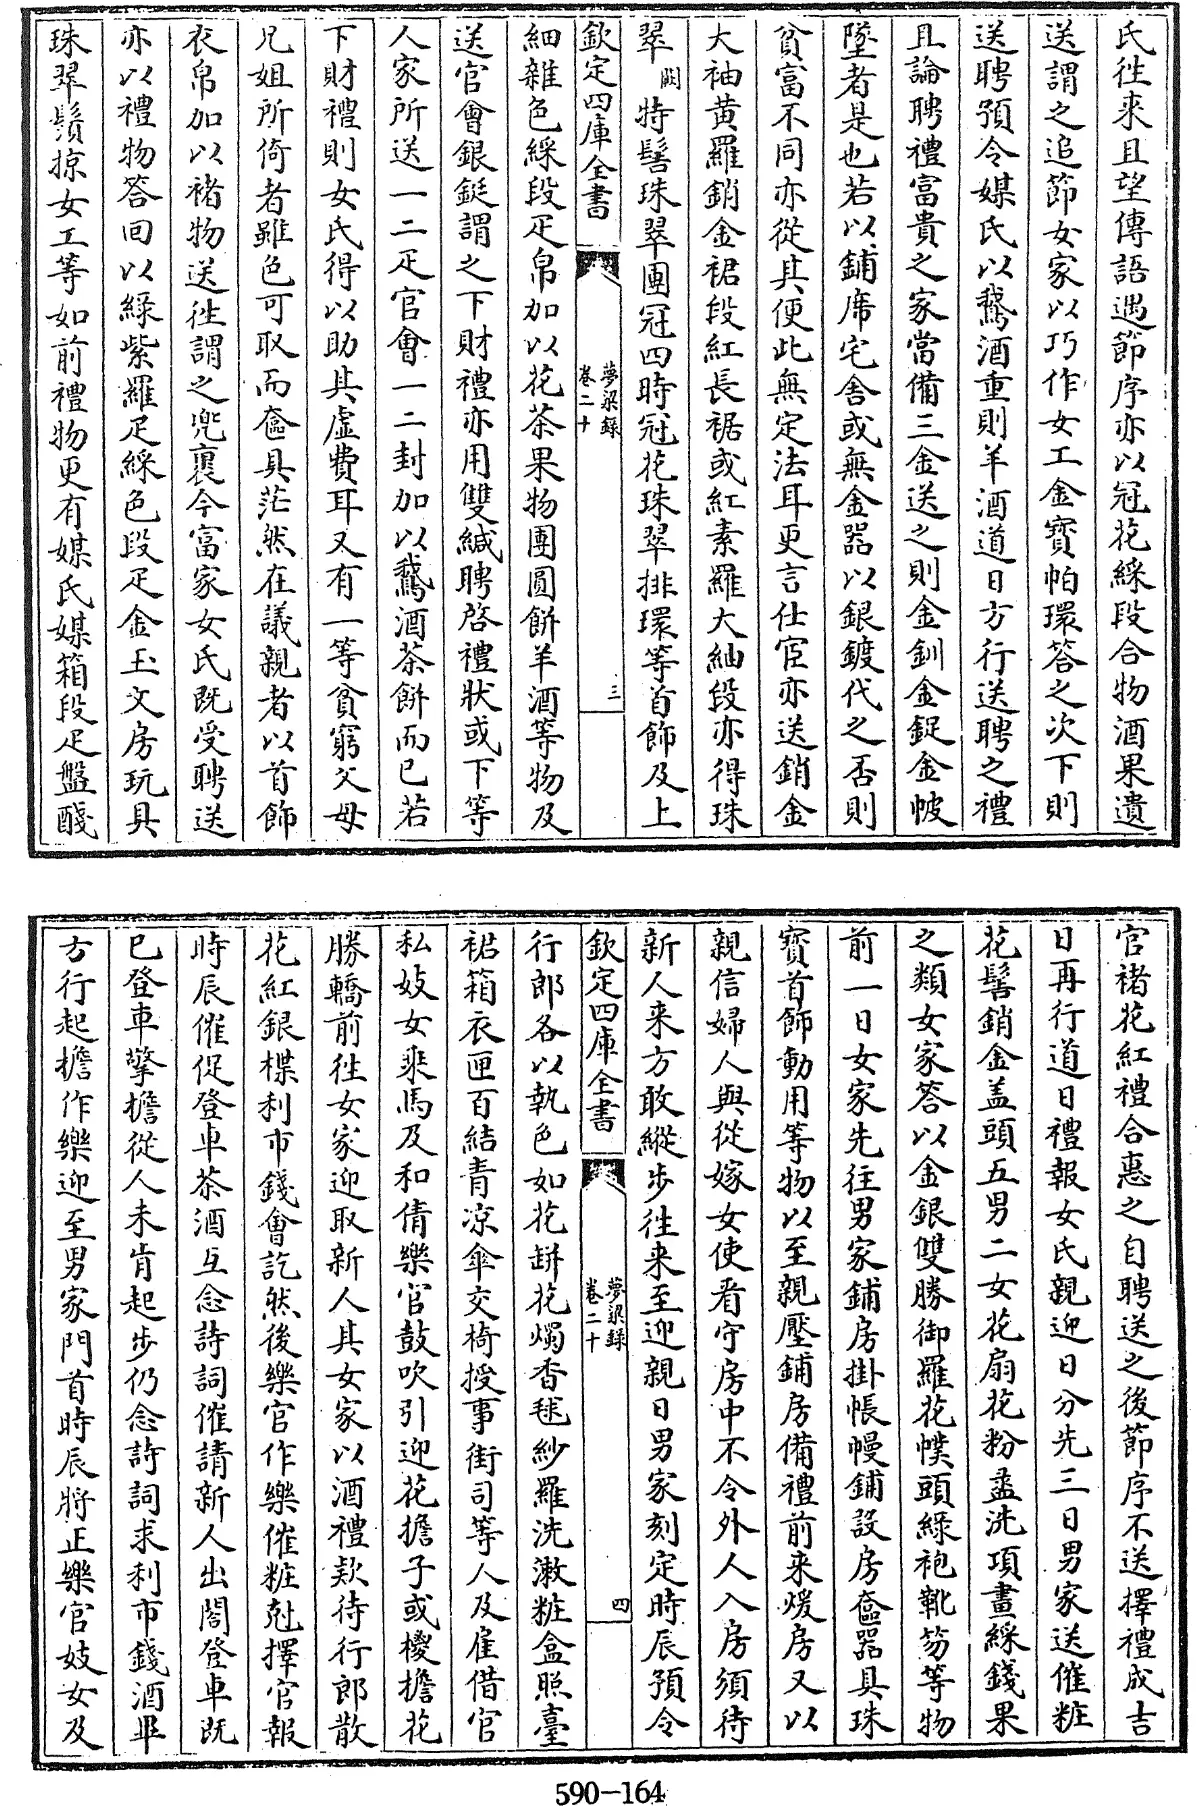 氏往來且望傳語遇節序亦以冠花綵段合物酒果遺
送謂之追節女家以巧作女工金寳帕環答之次下則
送聘預令媒氏以鵞酒重則羊酒道日方行送聘之禮
且論聘禮富貴之家當備三金送之則金釧金鋜金帔
墜者是也若以鋪席宅舍或無金器以銀鍍代之否則
貧富不同亦從其便此無定法耳更言仕宦亦送銷金
大袖黄羅銷金裙段紅長裾或紅素羅大紬段亦得珠
翠闕特髻珠翠團冠四時冠花珠翠排環等首飾及上
欽定四庫全書
夢粱錄
卷二十
三
細雜色綵段疋帛加以花茶果物團圓餅羊酒等物及
送官會銀鋌謂之下財禮亦用雙緘聘啓禮狀或下等
人家所送一二疋官會一二封加以鵞酒茶餅而已若
下財禮則女氏得以助其虛費耳又有一等貧窮父母
兄姐所倚者雖色可取而奩具茫然在議親者以首飾
衣帛加以褚物送往謂之兜裹今富家女氏既受聘送
亦以禮物答回以綠紫羅疋綵色段疋金玉文房玩具
珠翠鬚掠女工等如前禮物更有媒氏媒箱段疋盤醆
官褚花紅禮合惠之自聘送之後節序不送擇禮成吉
日再行道日禮報女氏親迎日分先三日男家送催粧
花髻銷金盖頭五男二女花扇花粉盝洗項畫綵錢果
之類女家答以金銀雙勝御羅花幞頭綠袍靴笏等物
前一日女家先往男家鋪房掛帳幔鋪設房奩器具珠
寳首飾動用等物以至親壓鋪房備禮前来煖房又以
親信婦人與從嫁女使看守房中不令外人入房須待
新人来方敢縱步往来至迎親日男家刻定時辰預令
欽定四庫全書
夢粱錄
卷二十
四
行郎各以執色如花缾花燭香毬紗羅洗漱粧盒照臺
裙箱衣匣百結青凉傘交椅授事街司等人及雇借官
私妓女乘馬及和倩樂官鼓吹引迎花擔子或椶擔花
勝轎前往女家迎取新人其女家以酒禮欵待行郎散
花紅銀楪利市錢會訖然後樂官作樂催粧尅擇官報
時辰催促登車茶酒互念詩詞催請新人出閣登車既
已登車擎擔從人未肯起步仍念詩詞求利市錢酒畢
方行起擔作樂迎至男家門首時辰將正樂官妓女及
590-164